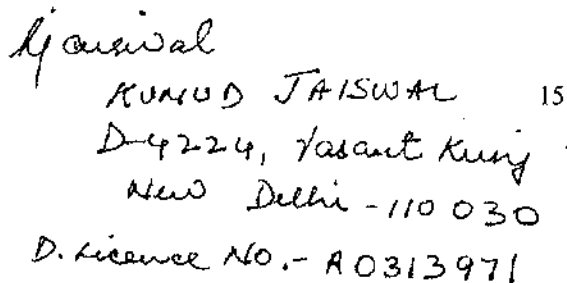 Kjaiswal
KUMUD JAISWAL 15
D-4224, Vasant Kunj
New Delhi - 110 030
D. Licence No. - A0313971